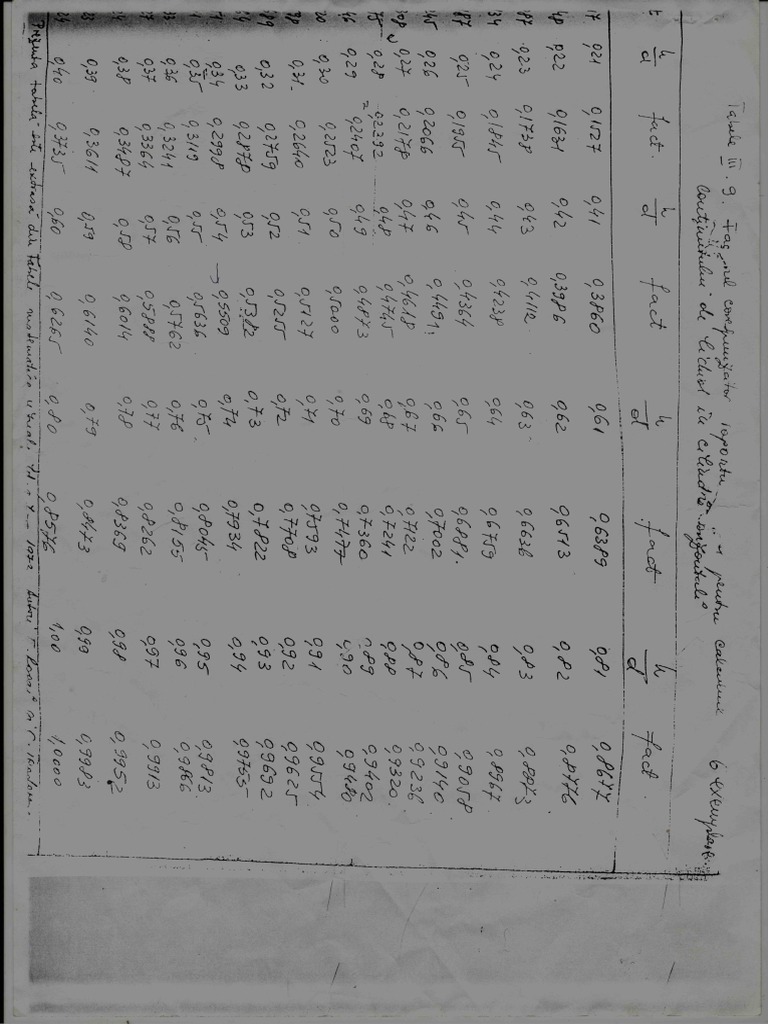 Tabela III.9. Factorul corespunzător raportu " " pentru calculul 6 exemplare.
conținutului de lichid în cilindrii orizontali
h/d fact. h/d fact h/d fact h/d fact
17 0,21 0,1527 0,41 0,3860 0,61 0,6389 0,81 0,8677
40 0,22 0,1631 0,42 0,3986 0,62 0,6513 0,82 0,8776
87 0,23 0,1738 0,43 0,4112 0,63 0,6636 0,83 0,8873
34 0,24 0,1845 0,44 0,4238 0,64 0,6759 0,84 0,8967
87 0,25 0,1955 0,45 0,4364 0,65 0,6881. 0,85 0,9058
45 0,26 0,2066 0,46 0,4491 0,66 0,7002 0,86 0,99140
0,27 0,2178 0,47 0,4618 0,67 0,7122 0,87 0,99236
0,28 0,2292 0,48 0,4745 0,68 0,7241 0,88 0,9320
0,29 0,2407 0,49 0,4873 0,69 0,7360 0,89 0,9402
0,30 0,2523 0,50 0,5000 0,70 0,7477 0,90 0,99480
0,31 0,2640 0,51 0,5127 0,71 0,7593 0,91 0,99554
0,32 0,2759 0,52 0,5255 0,72 0,7708 0,92 0,99625
0,33 0,2878 0,53 0,5382 0,73 0,7822 0,93 0,99692
0,34 0,2998 0,54 0,5509 0,74 0,7934 0,94 0,9755
0,35 0,3119 0,55 0,5636 0,75 0,8045 0,95 0,9813
0,36 0,3241 0,56 0,5762 0,76 0,8155 0,96 0,9866
0,37 0,3364 0,57 0,5888 0,77 0,8262 0,97 0,9913
0,38 0,3487 0,58 0,6014 0,78 0,8369 0,98 0,9952
0,39 0,3611 0,59 0,6140 0,79 0,8473 0,99 0,9983
0,40 0,3735 0,60 0,6265 0,80 0,8576 1,00 1,0000
Prezenta tabelă este extrasă din Tabele matematice uzuale,